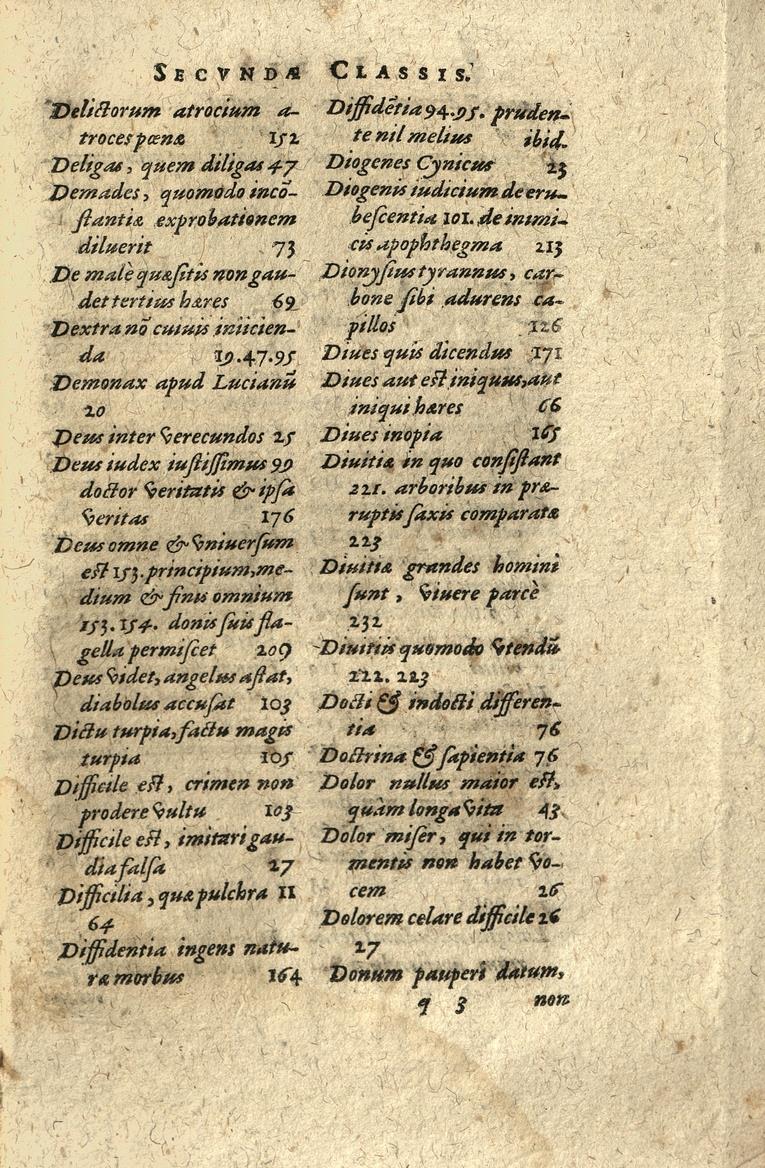 SECVNDÆ CLASSIS.
Delictorum atrocium a-
troces pœnæ 152
Deligas, quem diligas 47
Demades, quomodo incõ-
stantiæ exprobationem
diluerit 73
De malè quæsitis non gau-
det tertius hæres 69
Dextra nõ cuiuis iniicien-
da 19.47.95
Demonax apud Lucianũ
20
Deus inter verecundos 25
Deus iudex iustissimus 99
doctor veritatis & ipsa
veritas 176
Deus omne & vniuersum
est 153. principium, me-
dium & finis omnium
153.154. donis suis fla-
gella permiscet 209
Deus videt, angelus astat,
diabolus accusat 103
Dictu turpia, factu magis
turpia 105
Difficile est, crimen non
prodere vultu 103
Difficile est, imitari gau-
dia falsa 27
Difficilia, quæ pulchra 11
64
Diffidentia ingens natu-
ræ morbus 164
Diffidẽtia 94.95. pruden-
te nil melius ibid.
Diogenes Cynicus 23
Diogenis iudicium de eru-
bescentia 101. de inimi-
cis apophthegma 213
Dionysius tyrannus, car-
bone sibi adurens ca-
pillos 126
Diues quis dicendus 171
Diues aut est iniquus, aut
iniqui hæres 66
Diues inopia 165
Diuitiæ in quo consistant
221. arboribus in præ-
ruptis saxis comparatæ
223
Diuitiæ grandes homini
sunt, viuere parcè
232
Diuitiis quomodo vtendũ
222. 223
Docti & indocti differen-
tia 76
Doctrina & sapientia 76
Dolor nullus maior est,
quàm longa vita 43
Dolor miser, qui in tor-
mentis non habet vo-
cem 26
Dolorem celare difficile 26
27
Donum pauperi datum,
q 3 non